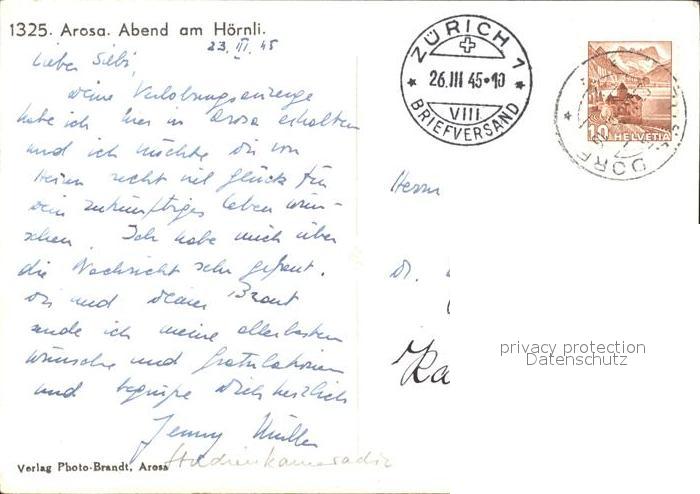 1325. Arosa. Abend am Hörnli.
23. III. 45
Lieber Sibi,
deine Verlobungsanzeige
habe ich hier in Arosa erhalten
und ich möchte dir von
Herzen recht viel Glück für
dein zukünftiges Leben wün-
schen. Ich habe mich über
die Nachricht sehr gefreut.
Dir und deiner Braut
sende ich meine allerbesten
Wünsche und Gratulationen
und begrüsse dich herzlich
Jenny Müller
Studienkameradin
Verlag Photo-Brandt, Arosa
ZÜRICH 1
26.III 45-10
VIII
BRIEFVERSAND
10 HELVETIA
DORF
Herrn
Dr.
privacy protection
Datenschutz